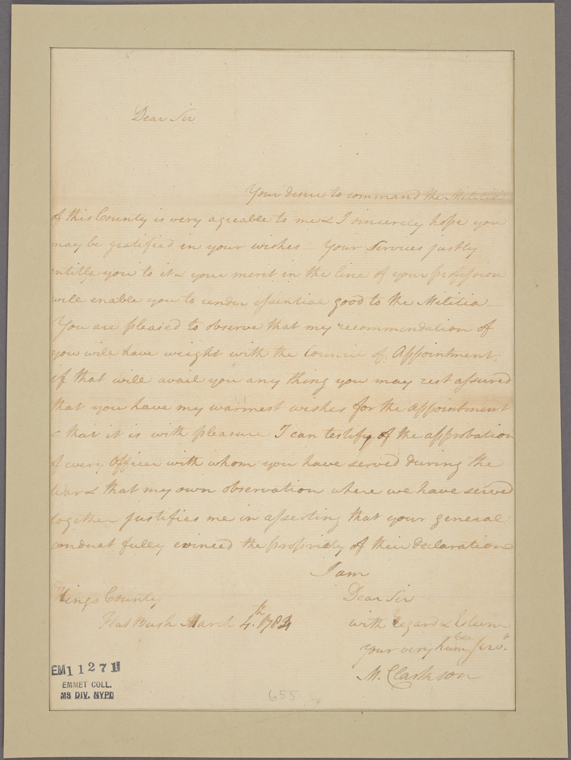 Dear Sir
Your desire to command the Militia
of this County is very agreable to me & I sincerely hope you
may be gratified in your wishes — Your Services justly
entitle you to it & your merit in the line of your profession
will enable you to render essential good to the Militia —
You are pleased to observe that my recommendation of
you will have weight with the Council of Appointment.
if that will avail you any thing you may rest assured
that you have my warmest wishes for the appointment
& that it is with pleasure I can testify of the approbation
of every Officer with whom you have served during the
War & that my own observation where we have served
together justifies me in asserting that your general
conduct fully evinced the propriety of their declaration
I am
Kings County Dear Sir
Flat Bush March 4th. 1784 with regard & Esteem
your very humble Servt.
M. Clarkson
EM11271
EMMET COLL.
MS DIV. NYPL
655